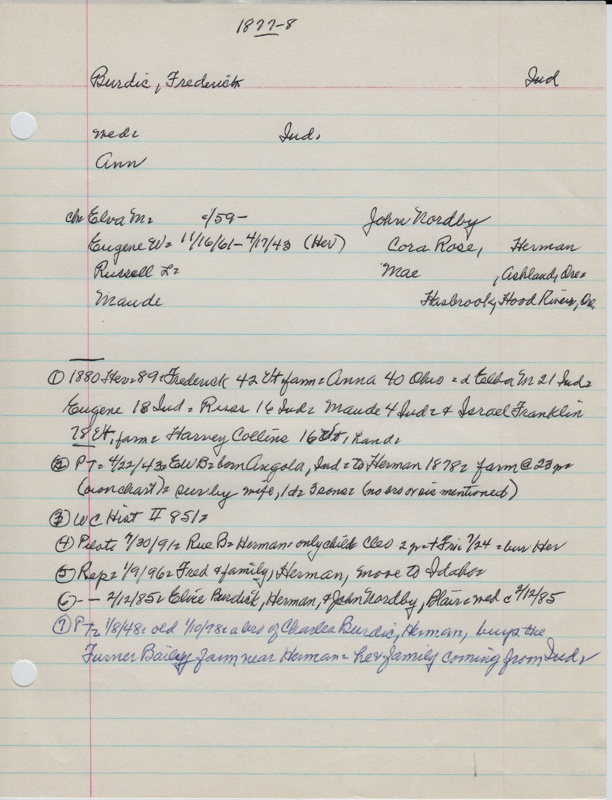 1877-8
Burdic, Frederick Ind
med: Ind.
Ann
ch= Elva M= c/59- John Nordby
Eugene W= 11/16/61-4/17/43 (Her) Cora Rose, Herman
Russell L= Mae , Ashland, Ore=
Maude Hasbrook, Hood River, Ore
① 1880 Her= 89= Frederick 42 Vt, farm= Anna 40 Ohio = d M 21 Ind=
Eugene 18 Ind= Russ 16 Ind= Maude 4 Ind= & Israel Franklin
78 Vt, farm= Harvey Collins 16 hand=
② PT= 4/22/43= EWB= born Angola, Ind= to Herman 1878= farm @ 23 m=
(own chart)= sur by wife, 1 d= 3 sons= (no bro or sis mentioned)
③ WC Hist II 851=
④ 7/30/91= Rue B= Herman= only child Cleo 2 Fri 7/24 = bur Her
⑤ Rep= 1/9/96= Fred & family, Herman, move to Idaho=
⑥ -- 2/12/85= Elvie Burdick, Herman, & John Nordby, Blair= med c 2/12/85
⑦ PT= 1/8/48= old 1/10/78= a bro of Charles Burdic, Herman, buys the
Turner Bailey farm near Herman= he & family coming from Ind=